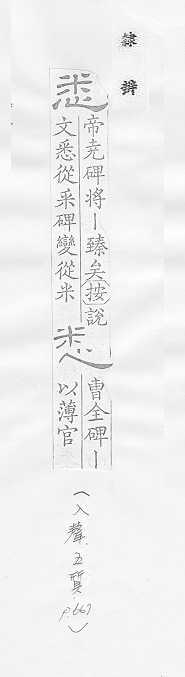 隸辨
悉
帝尭碑将丨臻矣按說
文悉從釆碑變從米
悉
曹全碑丨
以薄官
(入聲 五質 p.667)